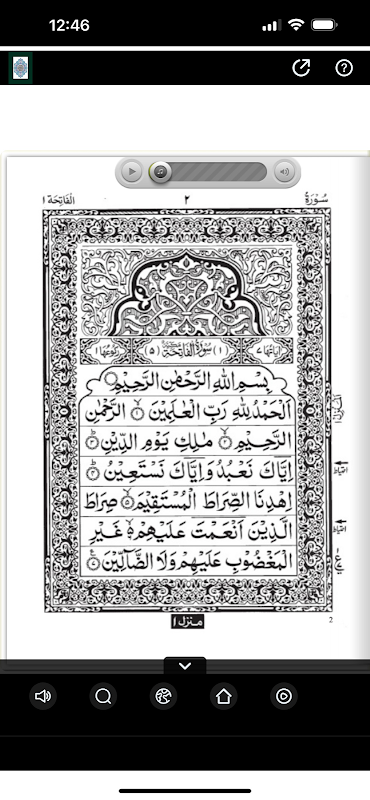 12:46
سُوْرَةُ ٢ اَلْفَاتِحَة ١
اٰيَاتُهَا ٧ (١) سُوْرَةُ الْفَاتِحَةِ مَكِّيَّةٌ (٥) رُكُوْعُهَا ١
بِسْمِ اللّٰهِ الرَّحْمٰنِ الرَّحِيْمِ
اَلْحَمْدُ لِلّٰهِ رَبِّ الْعٰلَمِيْنَ ۙ‏ ١ الرَّحْمٰنِ
الرَّحِيْمِ ۙ‏ ٢ مٰلِكِ يَوْمِ الدِّيْنِ ؕ‏ ٣
اِيَّاكَ نَعْبُدُ وَاِيَّاكَ نَسْتَعِيْنُ ؕ‏ ٤
اِهْدِنَا الصِّرَاطَ الْمُسْتَقِيْمَ ۙ‏ ٥ صِرَاطَ
الَّذِيْنَ اَنْعَمْتَ عَلَيْهِمْ ۙ ٦ غَيْرِ
الْمَغْضُوْبِ عَلَيْهِمْ وَلَا الضَّآلِّيْنَ ٧
منزل ١
2